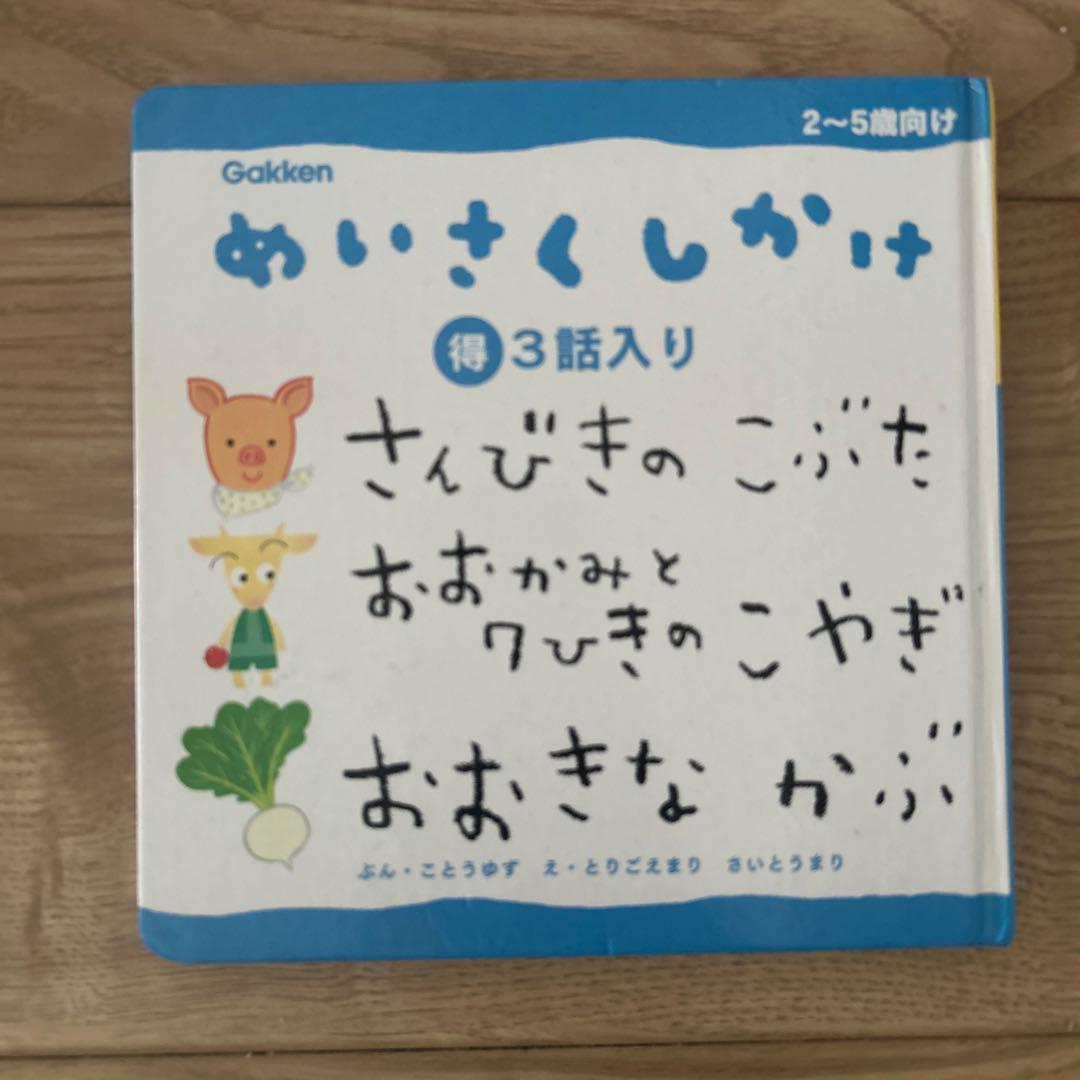 2〜5歳向け
Gakken
めいさくしかけ
得 3話入り
さんびきの こぶた
おおかみと
7ひきの こやぎ
おおきな かぶ
ぶん・ことうゆず え・とりごえまり さいとうまり